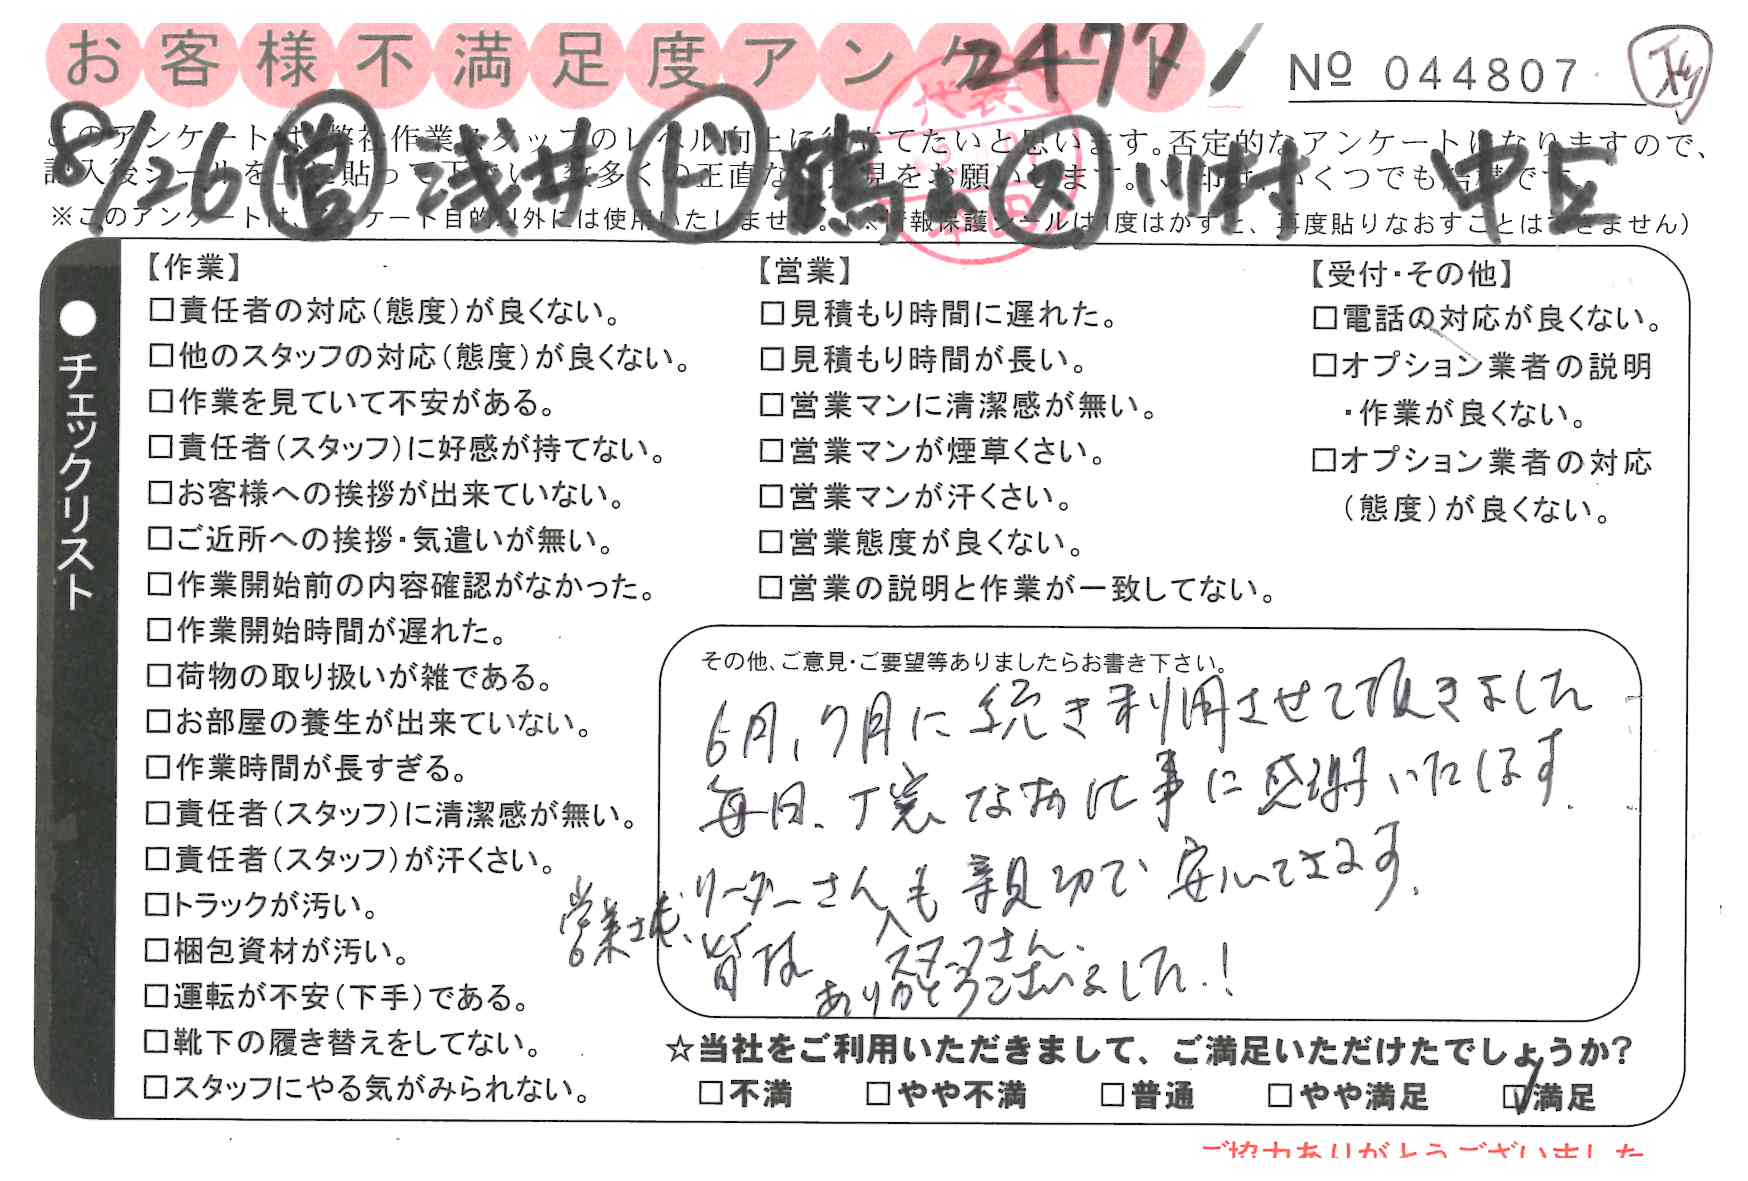 お客様不満足度アンケート
2477
Nº 044807
8/26 営 浅井 ド 鶴 ス 川村 中丘
このアンケートは、弊社作業スタッフのレベル向上に役立てたいと思います。否定的なアンケートになりますので、
記入後シールを上に貼って下さい。数多くの正直なご意見をお願いします。✓印は、いくつでも結構です。
※このアンケートは、アンケート目的以外には使用いたしません。(※情報保護シールは1度はがすと、再度貼りなおすことはできません)
代表
●チェックリスト
【作業】
□責任者の対応(態度)が良くない。
□他のスタッフの対応(態度)が良くない。
□作業を見ていて不安がある。
□責任者(スタッフ)に好感が持てない。
□お客様への挨拶が出来ていない。
□ご近所への挨拶・気遣いが無い。
□作業開始前の内容確認がなかった。
□作業開始時間が遅れた。
□荷物の取り扱いが雑である。
□お部屋の養生が出来ていない。
□作業時間が長すぎる。
□責任者(スタッフ)に清潔感が無い。
□責任者(スタッフ)が汗くさい。
□トラックが汚い。
□梱包資材が汚い。
□運転が不安(下手)である。
□靴下の履き替えをしてない。
□スタッフにやる気がみられない。
【営業】
□見積もり時間に遅れた。
□見積もり時間が長い。
□営業マンに清潔感が無い。
□営業マンが煙草くさい。
□営業マンが汗くさい。
□営業態度が良くない。
□営業の説明と作業が一致してない。
【受付・その他】
□電話の対応が良くない。
□オプション業者の説明
・作業が良くない。
□オプション業者の対応
(態度)が良くない。
その他、ご意見・ご要望等ありましたらお書き下さい。
6月、7月に続き利用させて頂きました
毎回、丁寧なお仕事に感謝いたします.
営業さまも、リーダーさんも親切で安心できます.
皆な スタッフさん、
ありがとうございました.!
☆当社をご利用いただきまして、ご満足いただけたでしょうか?
□不満 □やや不満 □普通 □やや満足 ☑満足
ご協力ありがとうございました